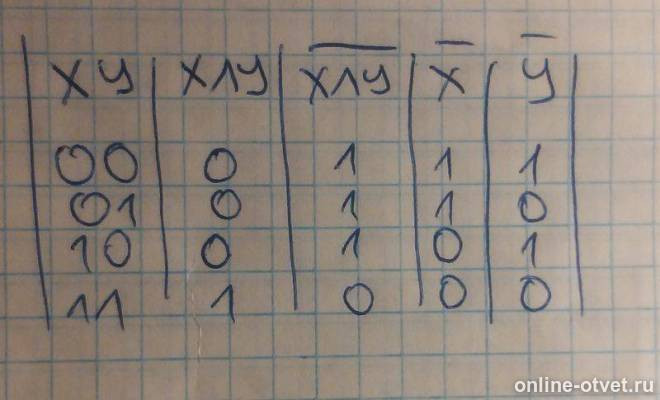 x y | x∧y | x∧y̅ | x̅ | y̅
00 | 0 | 1 | 1 | 1
01 | 0 | 1 | 1 | 0
10 | 0 | 1 | 0 | 1
11 | 1 | 0 | 0 | 0
online-otvet.ru